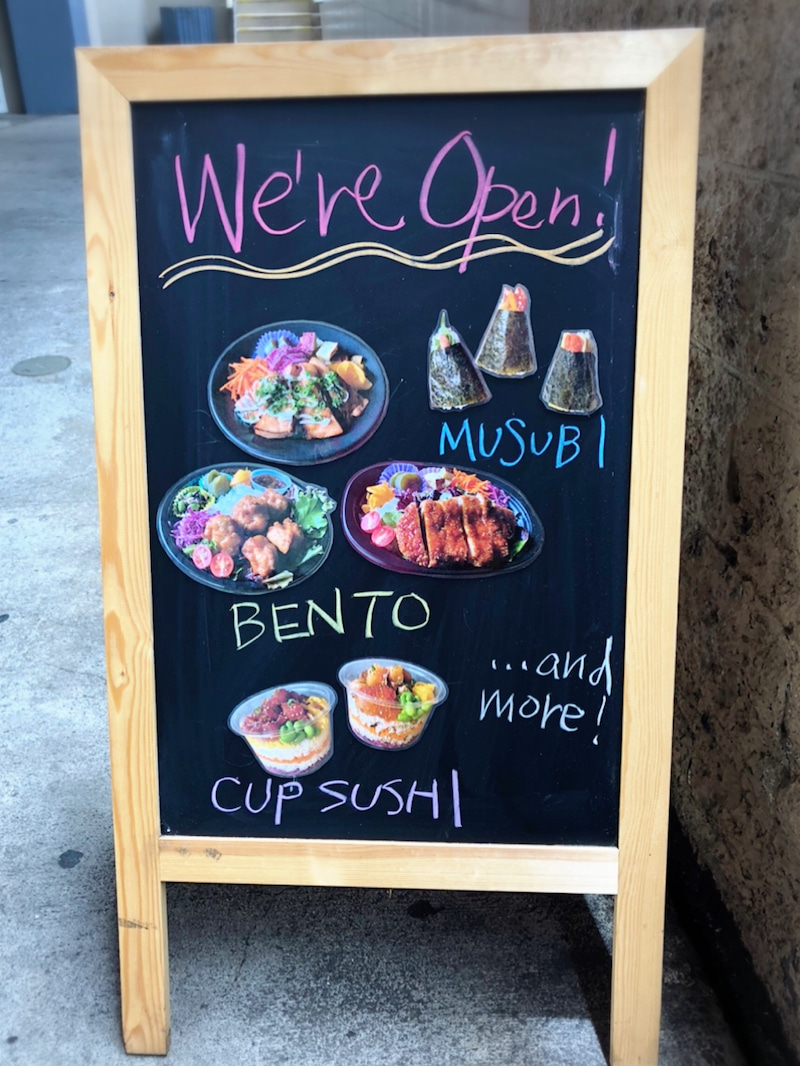 We're Open!
MUSUBI
BENTO
...and
more!
CUP SUSHI